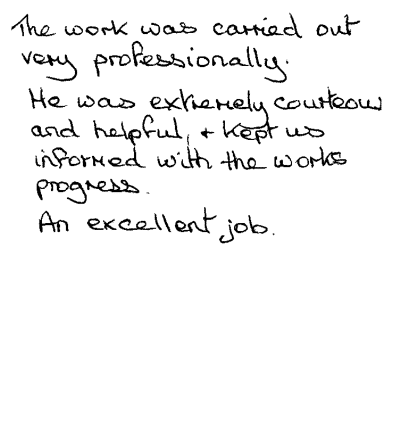 The work was carried out
very professionally.
He was extremely courteous
and helpful, + kept us
informed with the works
progress.
An excellent job.